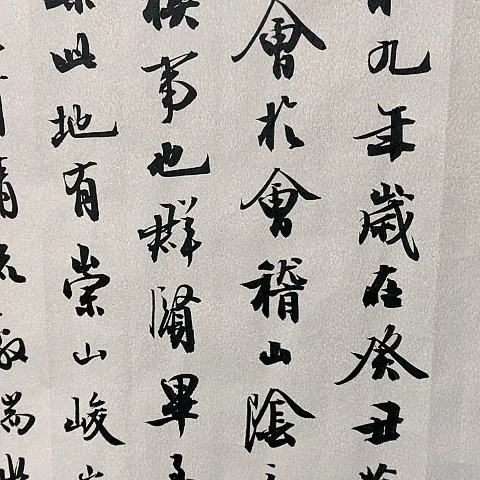 九年歲在癸丑
會於會稽山陰
禊事也群賢畢
此地有崇山峻
清流激湍